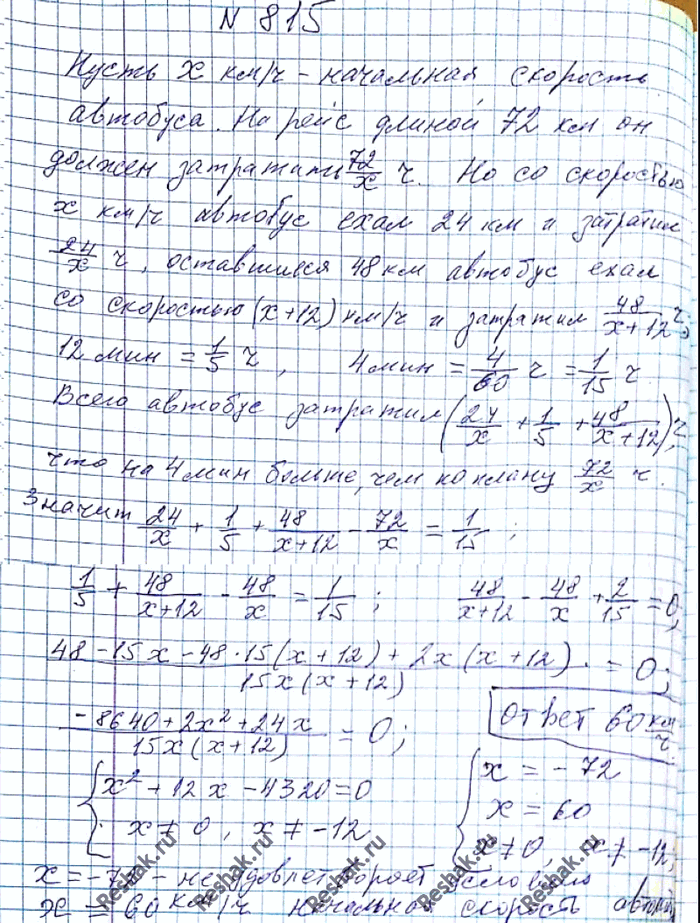 N 815
Пусть x км/ч - начальная скорость
автобуса. На рейс длиной 72 км он
должен затратить 72/x ч. Но со скоростью
x км/ч автобус ехал 24 км и затратил
24/x ч, оставшиеся 48 км автобус ехал
со скоростью (x+12) км/ч и затратил 48/(x+12) ч,
12 мин = 1/5 ч, 4 мин = 4/60 ч = 1/15 ч.
Всего автобус затратил (24/x + 1/5 + 48/(x+12)) ч,
что на 4 мин больше, чем по плану 72/x ч.
Значит 24/x + 1/5 + 48/(x+12) - 72/x = 1/15 ;
1/5 + 48/(x+12) - 48/x = 1/15 ; 48/(x+12) - 48/x + 2/15 = 0,
(48-15x-48·15(x+12)+2x(x+12))/(15x(x+12)) = 0;
(-8640+2x²+24x)/(15x(x+12)) = 0; Ответ 60 км/ч
{ x²+12x-4320=0
x≠0, x≠-12
{ x = -72
x = 60
x≠0, x≠-12,
x=-72 - не удовлетворяет условию
x = 60 км/ч начальная скорость
Reshak.ru Reshak.ru Reshak.ru Reshak.ru